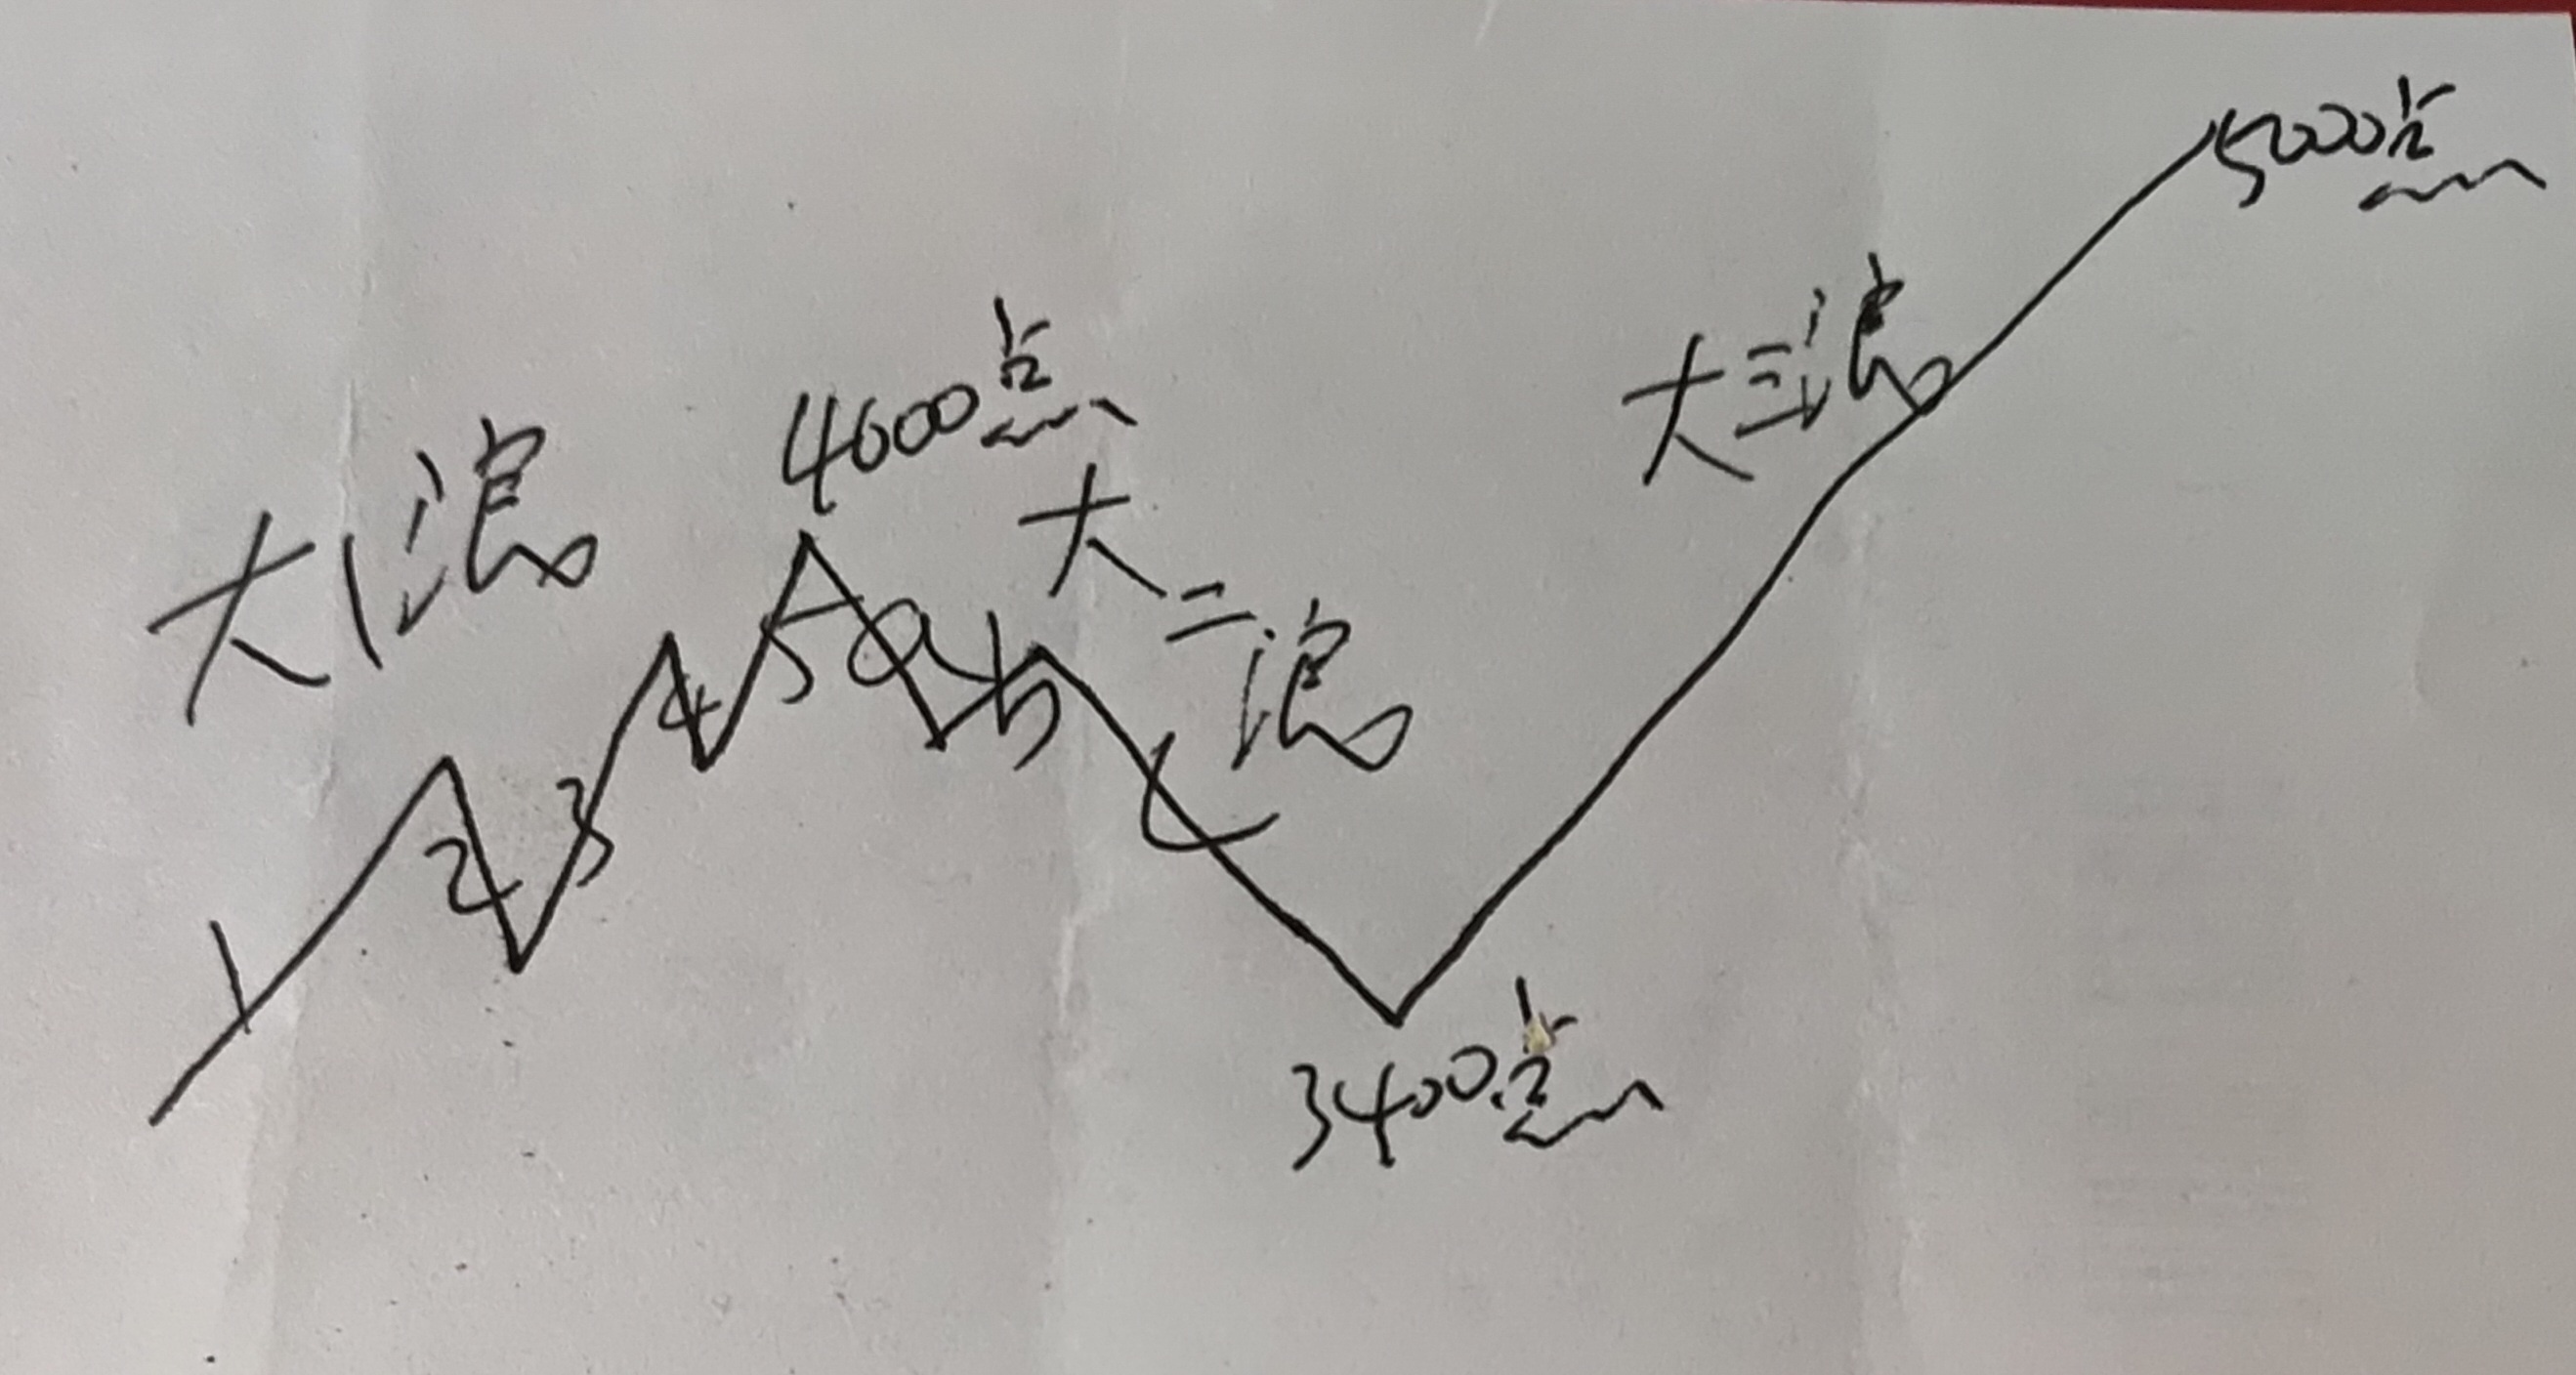 大1浪
1
2
3
4
5
4000点
a
b
c
大二浪
3400点
大三浪
5000点